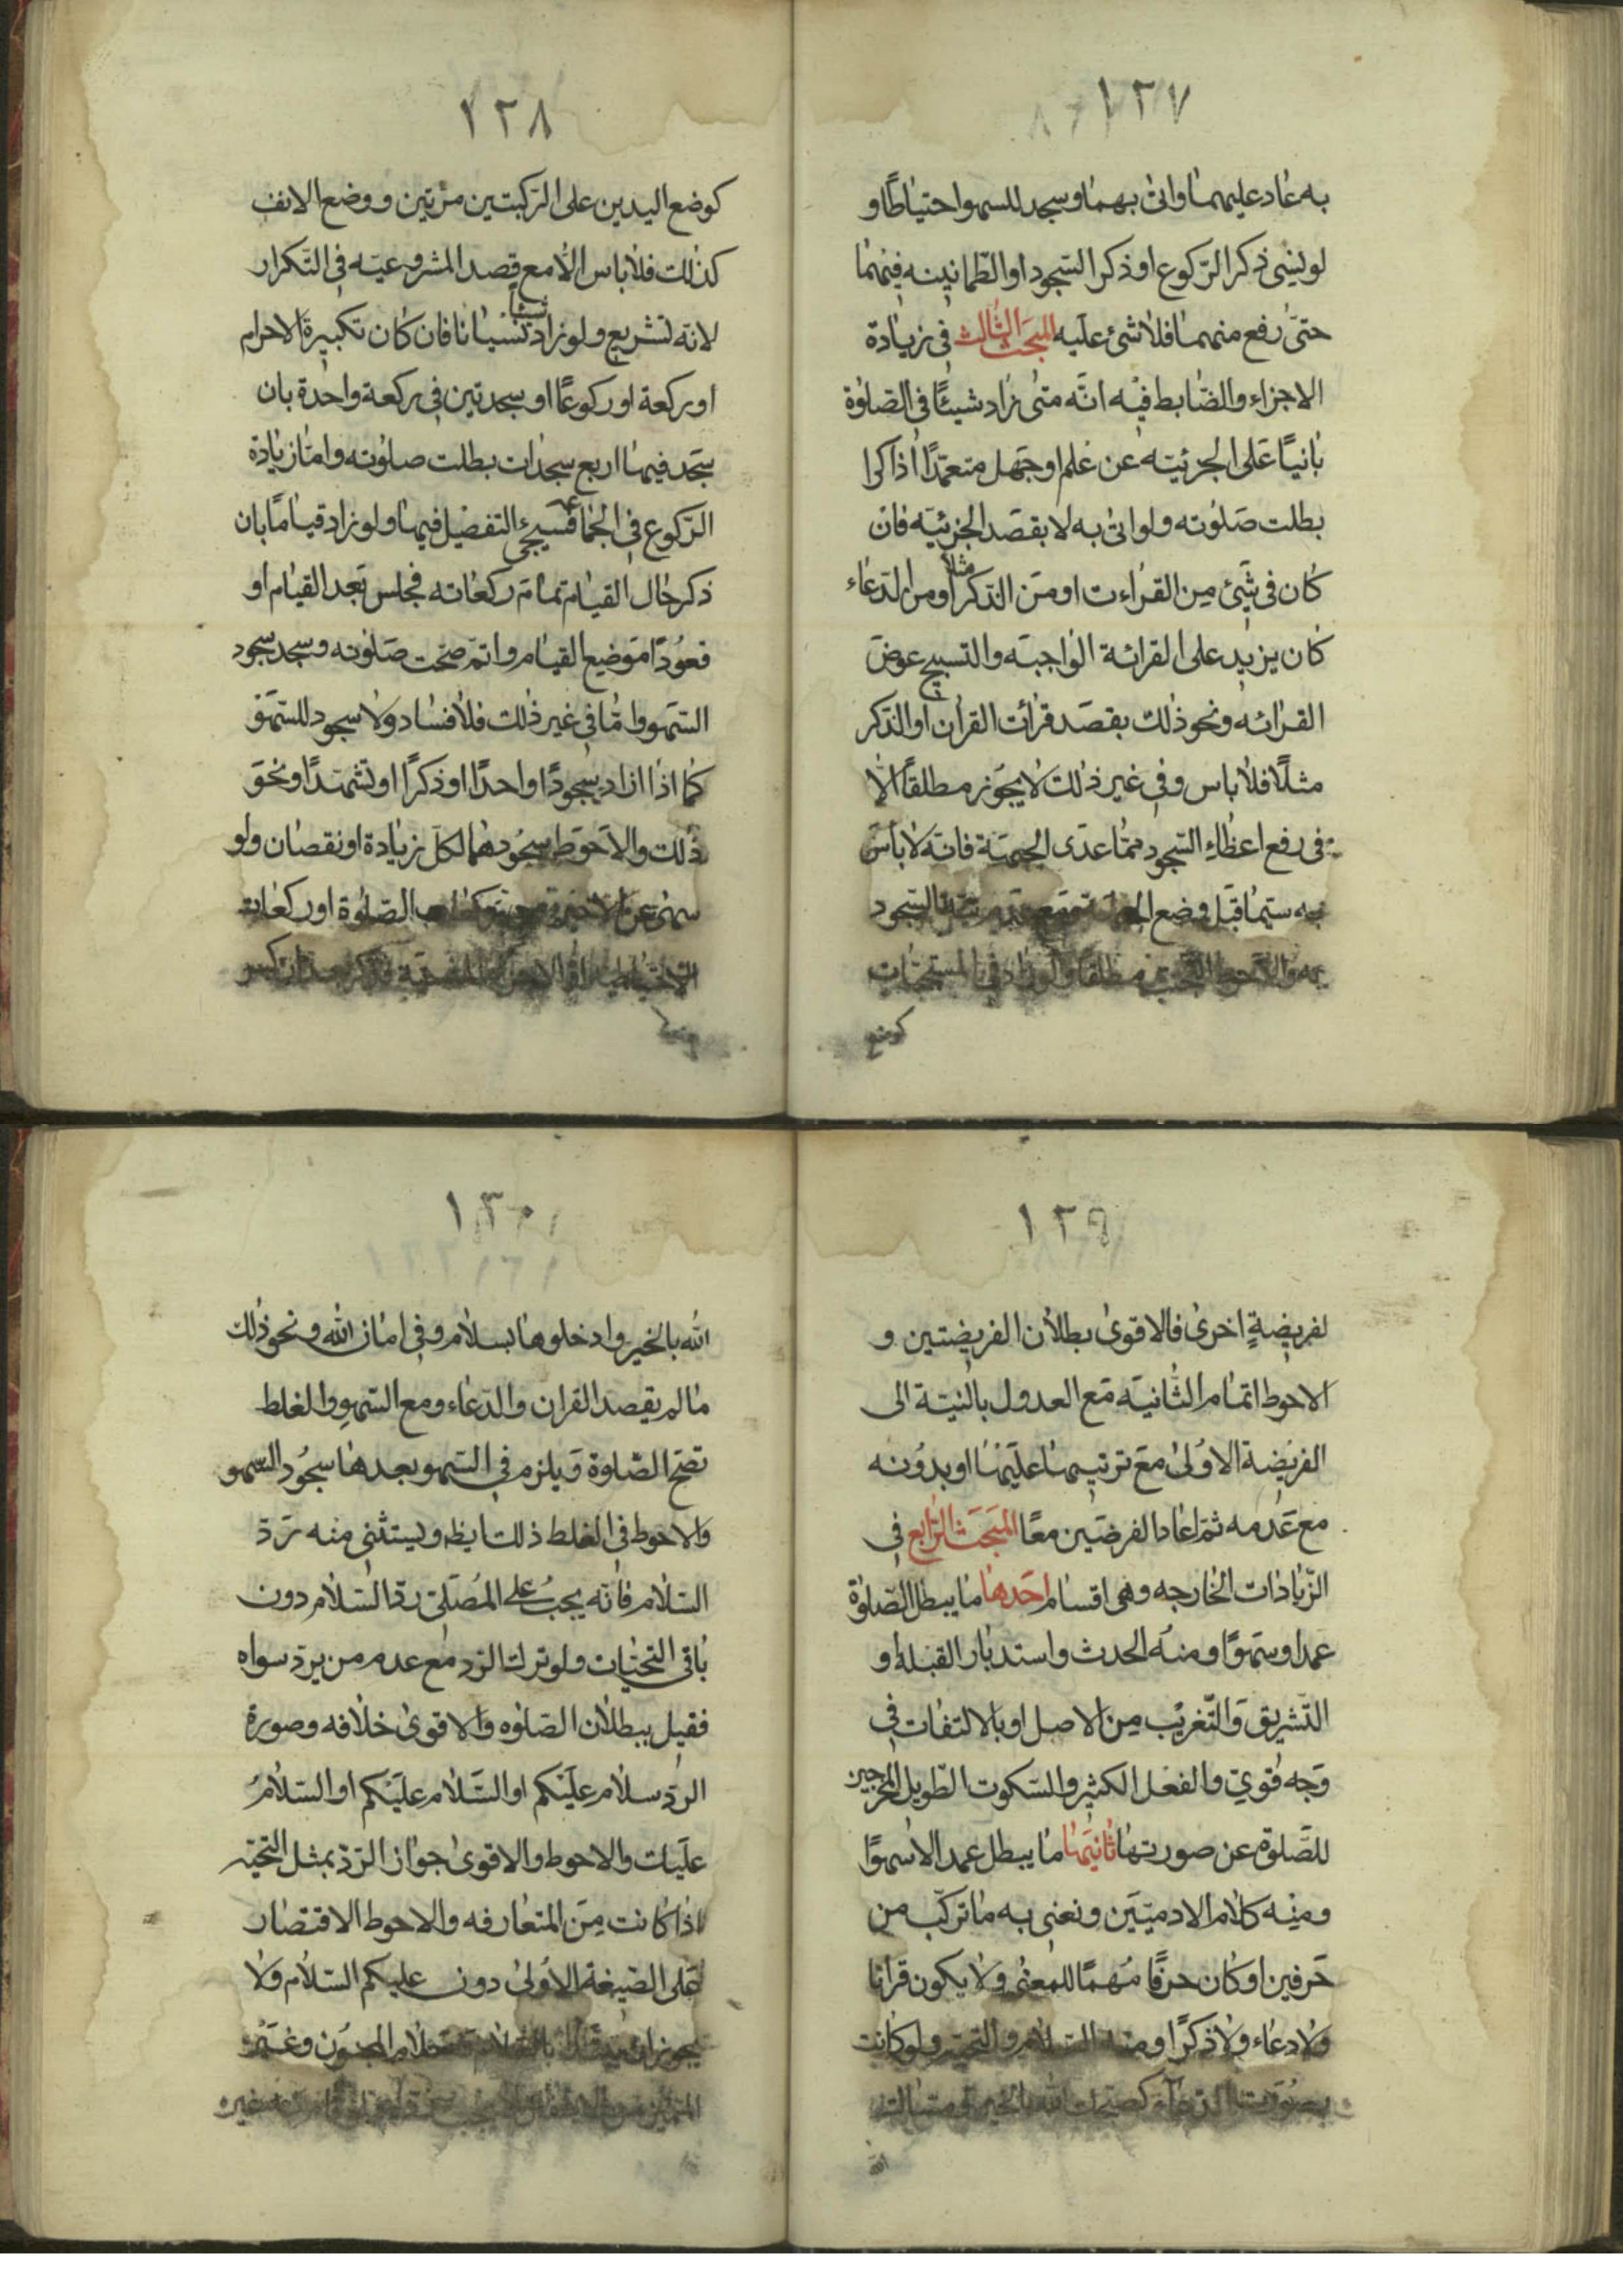 ١٢٧
به عاد عليهما واتى بهما وسجد للسهو احتياطًا و
لو نسى ذكر الركوع او ذكر السّجود او الطّمانينه فيهما
حتىّ رفع منهما فلا شئ عليه المبحث الثالث فى زيادة
الاجزاء والضّابط فيه انّه متى زاد شيئًا فى الصّلوة
بانيًا على الجزئيته عن علم او جهل متعمّدًا اذا كرا
بطلت صلوته ولو اتى به لا بقصد الجزئيّه فان
كان فى شئ من القراءت او من الذكر مثلًا او من الدّعاء
كان يزيد على القرائة الواجبه والتسبيح عوض
القرائه ونحو ذلك بقصد قرأت القران او الذكر
مثلًا فلا باس وفى غير ذلك لا يجوز مطلقًا الّا
فى رفع اعظاء السّجود ممّا عدى الجبهة فانّه لا باس
به سيّما قبل وضع السّجود
به والاحوط مطلقا ولو زاد فى المستحبّات
كوضع
١٢٨
كوضع اليدين على الرّكبتين مرّتين ووضع الانف
كذلك فلا باس الّا مع قصد المشروعيّه فى التّكرار
لانّه تشريع ولو زاد شيئا نسيانا فان كان تكبيرة الاحرام
او ركعة او ركوعًا او سجدتين فى ركعة واحدة بان
سجد فيها اربع سجدات بطلت صلوته وامّا زيادة
الرّكوع فى الجماعة فسيجئ التفصيل فيها ولو زاد قيامًا بان
ذكر حال القيام تمام ركعاته فجلس بعد القيام او
قعودًا موضع القيام واتم صحّت صلوته وسجد سجود
السّهو وامّا فى غير ذلك فلا فساد ولا سجود للسّهو
كما اذا ازاد سجودًا واحدًا او ذكرًا او تشهّدًا ونحو
ذلك والاحوط سجودهما لكلّ زيادة او نقصان ولو
سهى عن الصّلوة او ركعات
الاحتياط
١٢٩
لفريضةٍ اخرى فالاقوى بطلان الفريضتين و
الاحوط اتمام الثّانيه مع العدول بالنيّة الى
الفريضة الاولى مع ترتيبها عليها او بدونه
مع عدمه ثمّ اعاد الفرضين معًا المبحث الرّابع فى
الزّيادات الخارجه وهى اقسام احدها ما يبطل الصّلوة
عمدا وسهوًا ومنه الحدث واستدبار القبله او
التّشريق والتّغريب من الاصل او بالالتفات فى
وجه قوىّ والفعل الكثير والسّكوت الطّويل المخرجين
للصّلوة عن صورتها ثانيها ما يبطل عمدا لا سهوًا
ومنه كلام الادميّين ونعنى به ما تركّب من
حرفين او كان حرفًا مُهمًا للمعنى ولا يكون قرانا
ولا دعاء ولا ذكرًا ومنه السّلام والتحيّة ولو كانت
بصورت الدّعاء كصبّحك الله بالخير او مسّاك
الله
١٣٠
الله بالخير وادخلوها بسلام وفى امان الله ونحو ذلك
ما لم يقصد القران والدّعاء ومع السّهو والغلط
تصحّ الصّلوة ويلزم فى السّهو بعدها سجود السّهو
والاحوط فى الغلط ذلك ايظ ويستثنى منه ردّ
السّلام فانّه يجب على المُصلّى ردّ السّلام دون
باقى التحيّات ولو ترك الرّد مع عدم من يردّ سواه
فقيل ببطلان الصّلوه والاقوى خلافه وصورة
الردّ سلام عليكم او السّلام عليكم او السّلام
عليك والاحوط والاقوى جواز الرّدّ بمثل التحيّة
اذا كانت من المتعارفه والاحوط الاقتصار
على الصّيغة الاولى دون عليكم السّلام ولا
يجوز
غيره